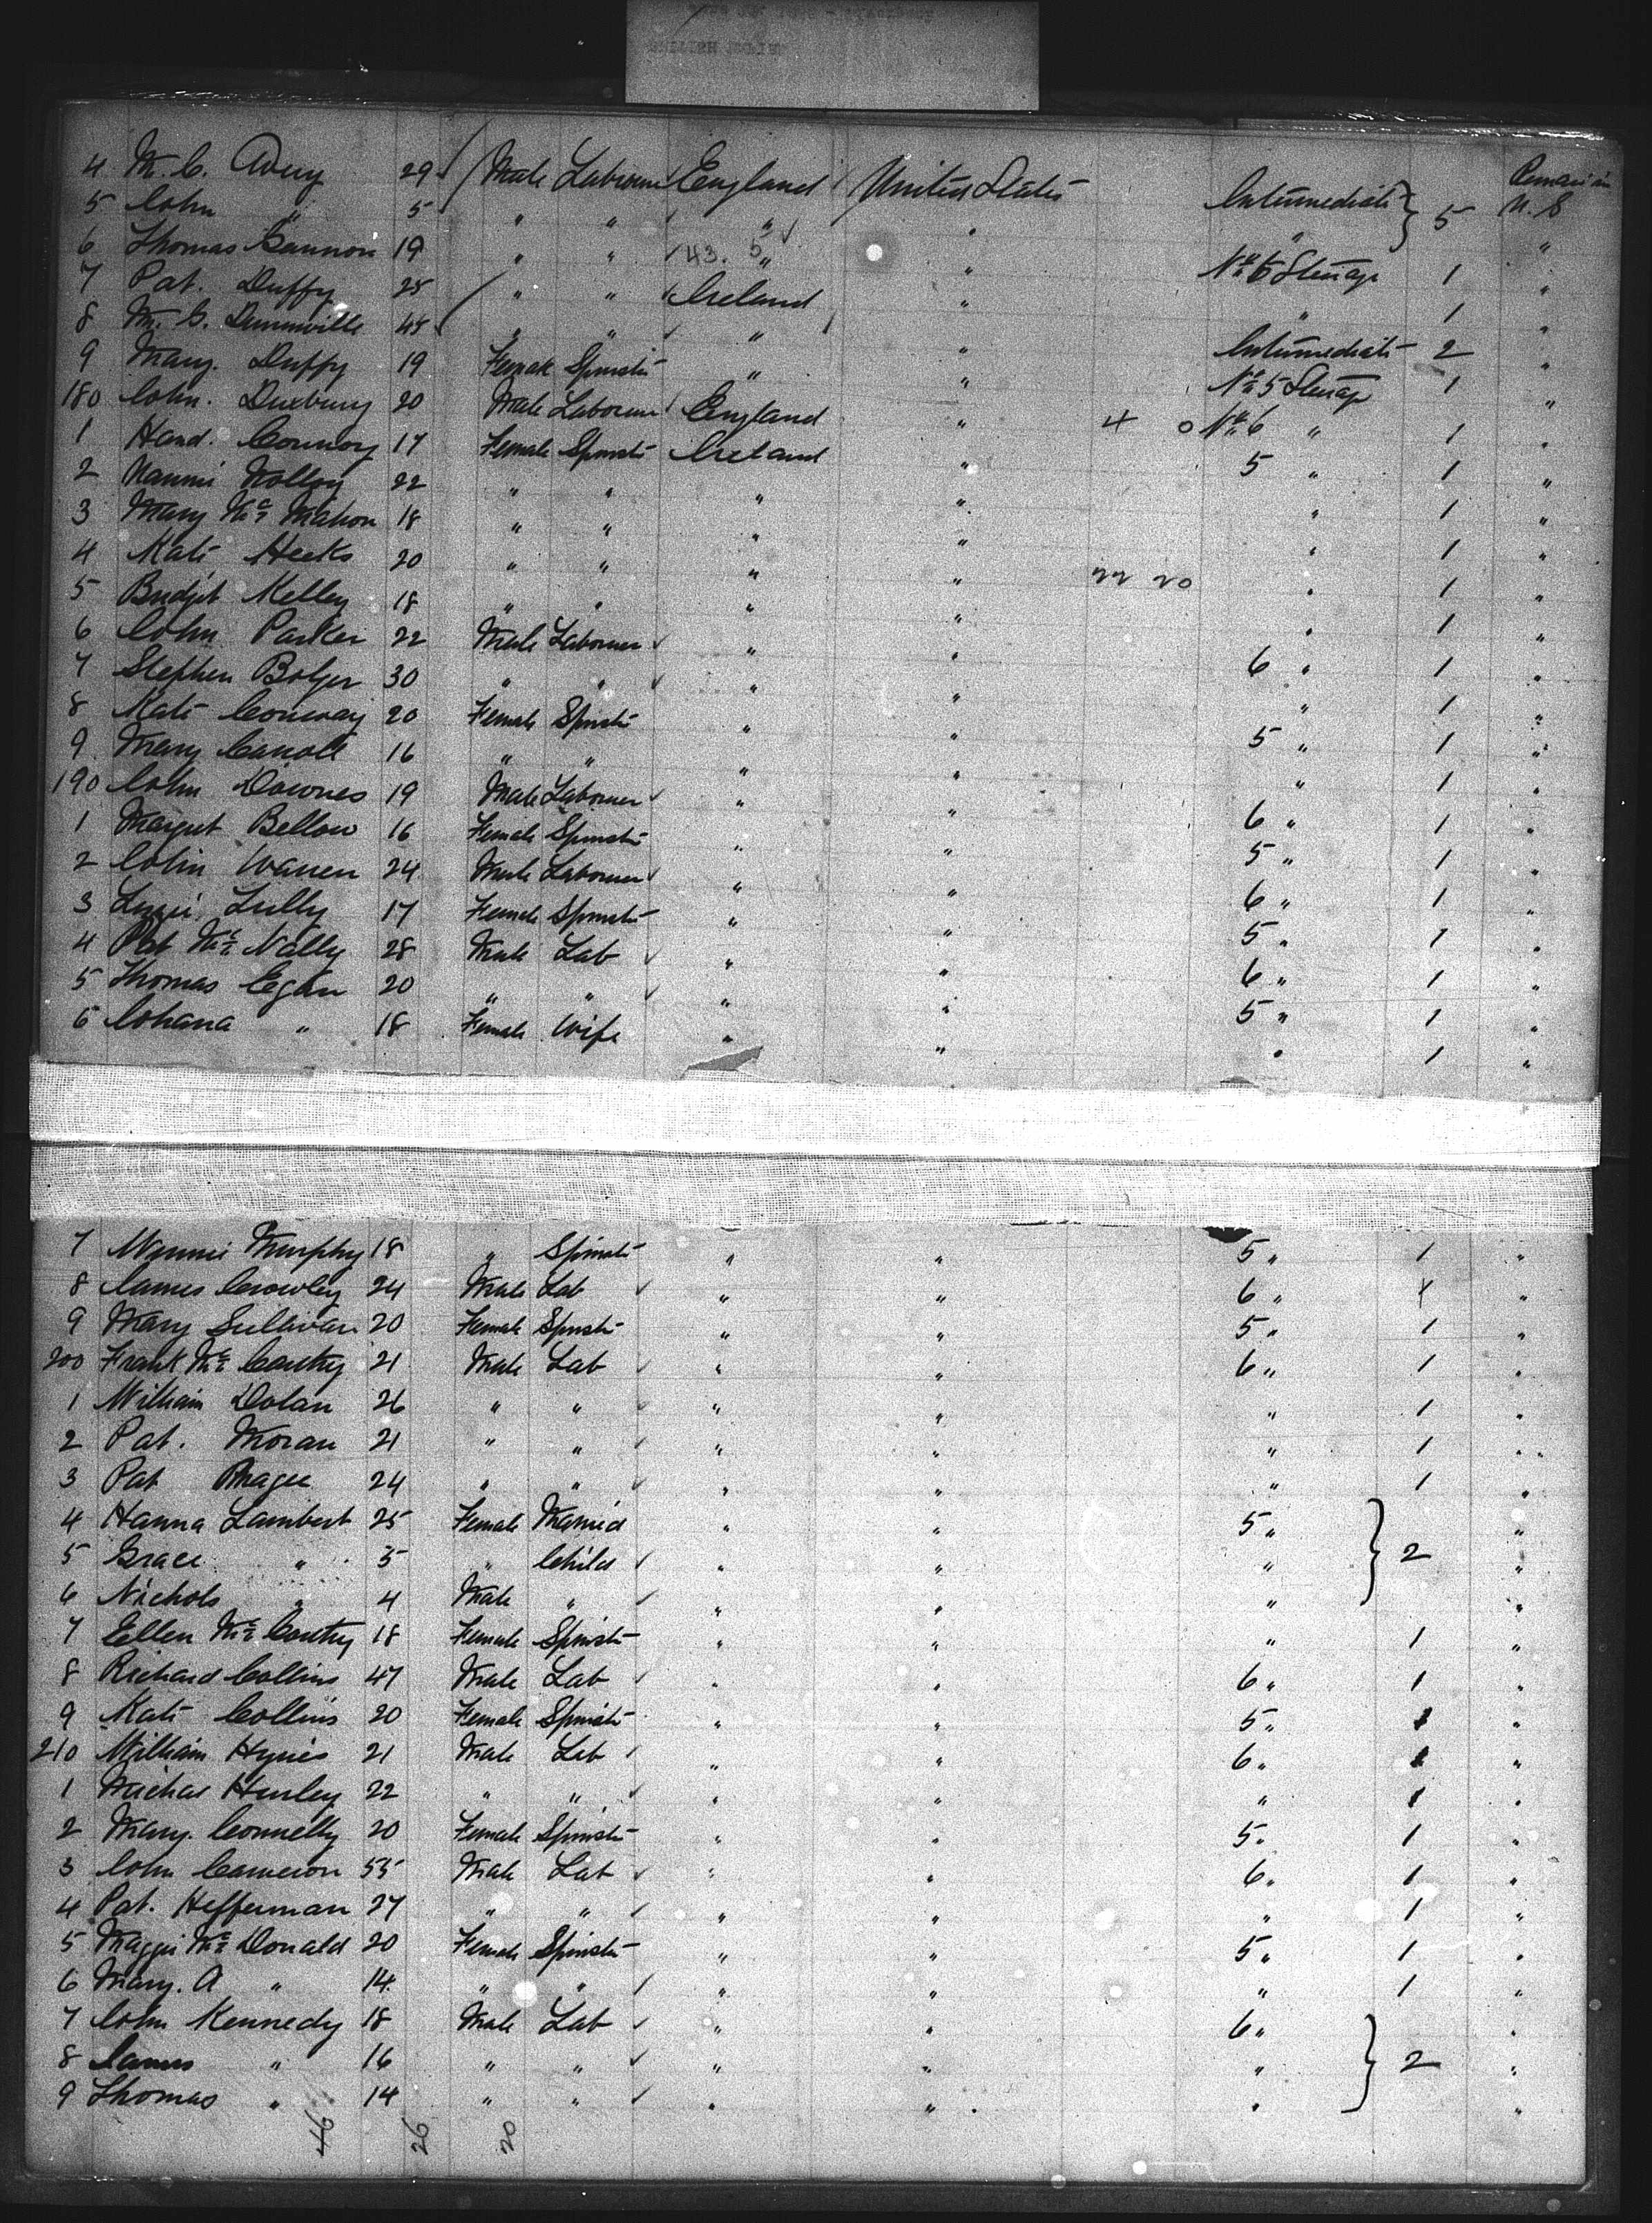 4 M. C. Avery 29 Male Labourer England United States Intermediate } 5 Remain in U. S
5 John " 5 " " " " " "
6 Thomas Gannon 19 " " 43. 5 " " No 6 Steerage 1 "
7 Pat. Duffy 25 " " Ireland " " 1 "
8 M. C. Dunnville 48 " " " " Intermediate 2 "
9 Mary. Duffy 19 Female Spinster " " No 5 Steerage 1 "
180 John. Duxbury 20 Male Laborour England " 4 0 No 6 " 1 "
1 Hand. Connory 17 Female Spinster Ireland " 5 " 1 "
2 Nannie Molloy 22 " " " " " 1 "
3 Mary Mc Mahon 18 " " " " " 1 "
4 Kate Heeks 20 " " " " 22 20 " 1 "
5 Bridget Kelley 18 " " " " " 1 "
6 John Parker 22 Male Laborour " " 6 " 1 "
7 Stephen Bolger 30 " " " " " 1 "
8 Kate Conway 20 Female Spinster " " 5 " 1 "
9 Mary Carroll 16 " " " " " 1 "
190 John Downes 19 Male Laborour " " 6 " 1 "
1 Margret Bellow 16 Female Spinster " " 5 " 1 "
2 John Warren 24 Male Laborour " " 6 " 1 "
3 Lizzie Lully 17 Female Spinster " " 5 " 1 "
4 Pat Mc Nally 28 Male Lab " " 6 " 1 "
5 Thomas Egan 20 " " " " 5 " 1 "
6 Johana " 18 Female Wife " " " 1 "
7 Minnie Murphy 18 " Spinster " " 5 " 1 "
8 James Crowley 24 Male Lab " " 6 " 1 "
9 Mary Sullivan 20 Female Spinster " " 5 " 1 "
200 Frank Mc Carthy 21 Male Lab " " 6 " 1 "
1 William Dolan 26 " " " " " 1 "
2 Pat. Moran 21 " " " " " 1 "
3 Pat Magee 24 " " " " " 1 "
4 Hanna Lambert 25 Female Married " " 5 " "
5 Grace " 5 " Child " " " } 2 "
6 Nichols " 4 Male " " " " "
7 Ellen Mc Carthy 18 Female Spinster " " " 1 "
8 Richard Collins 47 Male Lab " " 6 " 1 "
9 Kate Collins 20 Female Spinster " " 5 " 1 "
210 William Hynes 21 Male Lab " " 6 " 1 "
1 Michael Hurley 22 " " " " " 1 "
2 Mary. Connelly 20 Female Spinster " " 5 " 1 "
3 John Cameron 55 Male Lab " " 6 " 1 "
4 Pat. Hefferman 27 " " " " " 1 "
5 Maggie Mc Donald 20 Female Spinster " " 5 " 1 "
6 Mary. A " 14 " " " " " 1 "
7 John Kennedy 18 Male Lab " " 6 " "
8 James " 16 " " " " " } 2 "
9 Thomas " 14 " " " " " "
46 26 20